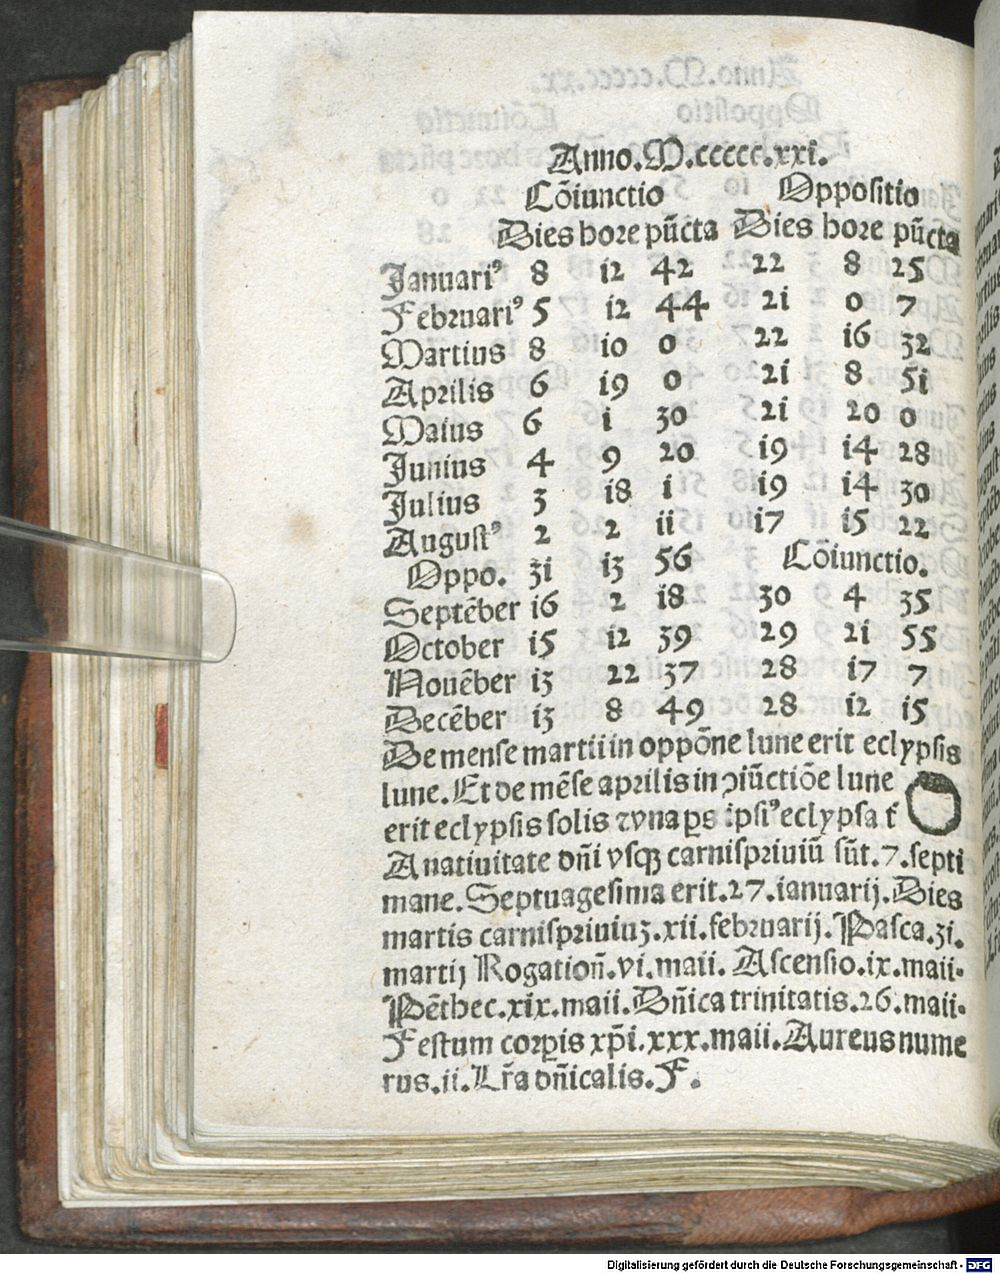 Anno.M.ccccc.xxi.
Cōiunctio Oppositio
Dies hore pūcta Dies hore pūcta
Januariꝰ 8 i2 42 22 8 25
Februariꝰ 5 i2 44 2i 0 7
Martius 8 i0 0 22 i6 32
Aprilis 6 i9 0 2i 8 5i
Maius 6 i 30 2i 20 0
Junius 4 9 20 i9 i4 28
Julius 3 i8 i i9 i4 30
Augustꝰ 2 2 ii i7 i5 22
Oppo. 3i i3 56 Cōiunctio.
Septēber i6 2 i8 30 4 35
October i5 i2 39 29 2i 55
Nouēber i3 22 37 28 i7 7
Decēber i3 8 49 28 i2 i5
De mense martii in oppōne lune erit eclypsis
lune. Et de mēse aprilis in ꝯiūctiōe lune
erit eclypsis solis ⁊ vna ꝑs ipsiꝰ eclypsa t̄
A natiuitate dn̄i vsqꝫ carnispriuiū sūt.7.septi
mane. Septuagesima erit.27.ianuarij. Dies
martis carnispriuiuꝫ.xii.februarij. Pasca.3i.
martij Rogation̄.vi.maii. Ascensio.ix.maii.
Pēthec.xix.maii. Dn̄ica trinitatis.26.maii.
Festum corꝑis xp̄i.xxx.maii. Aureus nume
rus.ii. Lr̄a dn̄icalis.F.
Digitalisierung gefördert durch die Deutsche Forschungsgemeinschaft - DFG